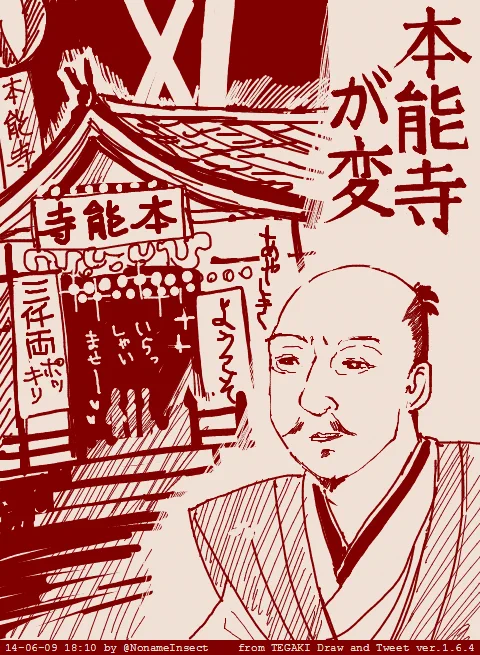 本能寺
が変
本能寺
寺能本
三仟両ポッキリ
いらっ
しゃい
ませー♥
ようこそ
14-06-09 18:10 by @NonameInsect from TEGAKI Draw and Tweet ver.1.6.4